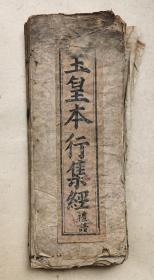 玉皇本行集經